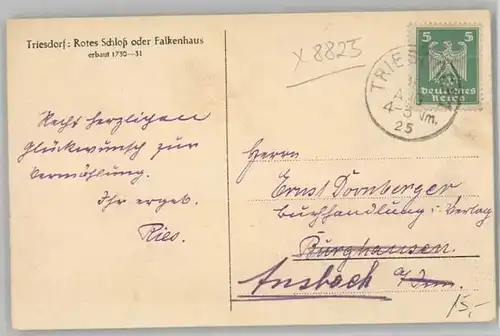 Triesdorf: Rotes Schloß oder Falkenhaus
erbaut 1730—31
X 8825
5 5
Deutsches
Reich
TRIES
A
4-5 Nm.
25
Recht herzlichen
Glückwunsch zur
Vermählung.
Ihr ergeb.
Ries.
Herrn
Ernst Dornberger
Buchhandlung u. Verlag
Burghausen
Ansbach a/Inn.
15,-